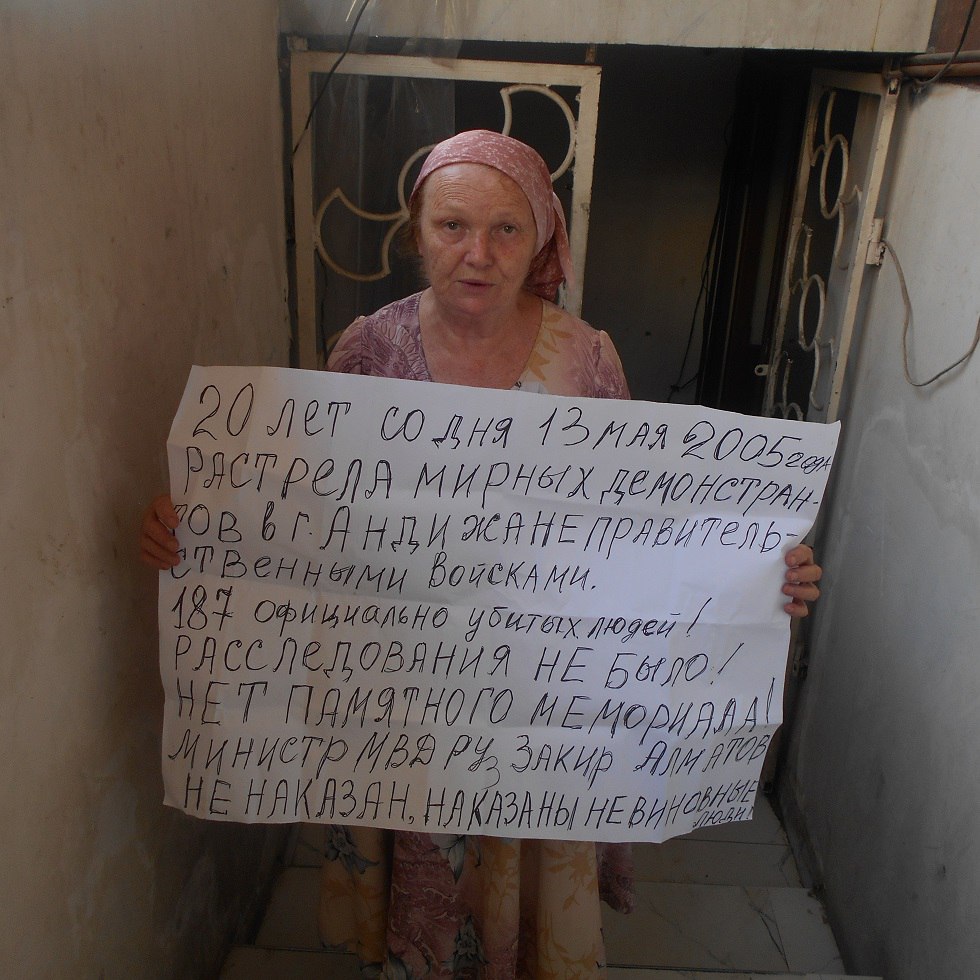 20 лет со дня 13 мая 2005 года
РАСТРЕЛА МИРНЫХ ДЕМОНСТРАН-
ТОВ в г. АНДИЖАНЕ ПРАВИТЕЛЬ-
СТВЕННЫМИ ВОЙСКАМИ.
187 официально убитых людей!
РАССЛЕДОВАНИЯ НЕ БЫЛО!
НЕТ ПАМЯТНОГО МЕМОРИАЛА!
МИНИСТР МВД РУз ЗАКИР АЛМАТОВ
НЕ НАКАЗАН, НАКАЗАНЫ НЕВИНОВНЫЕ
ЛЮДИ!